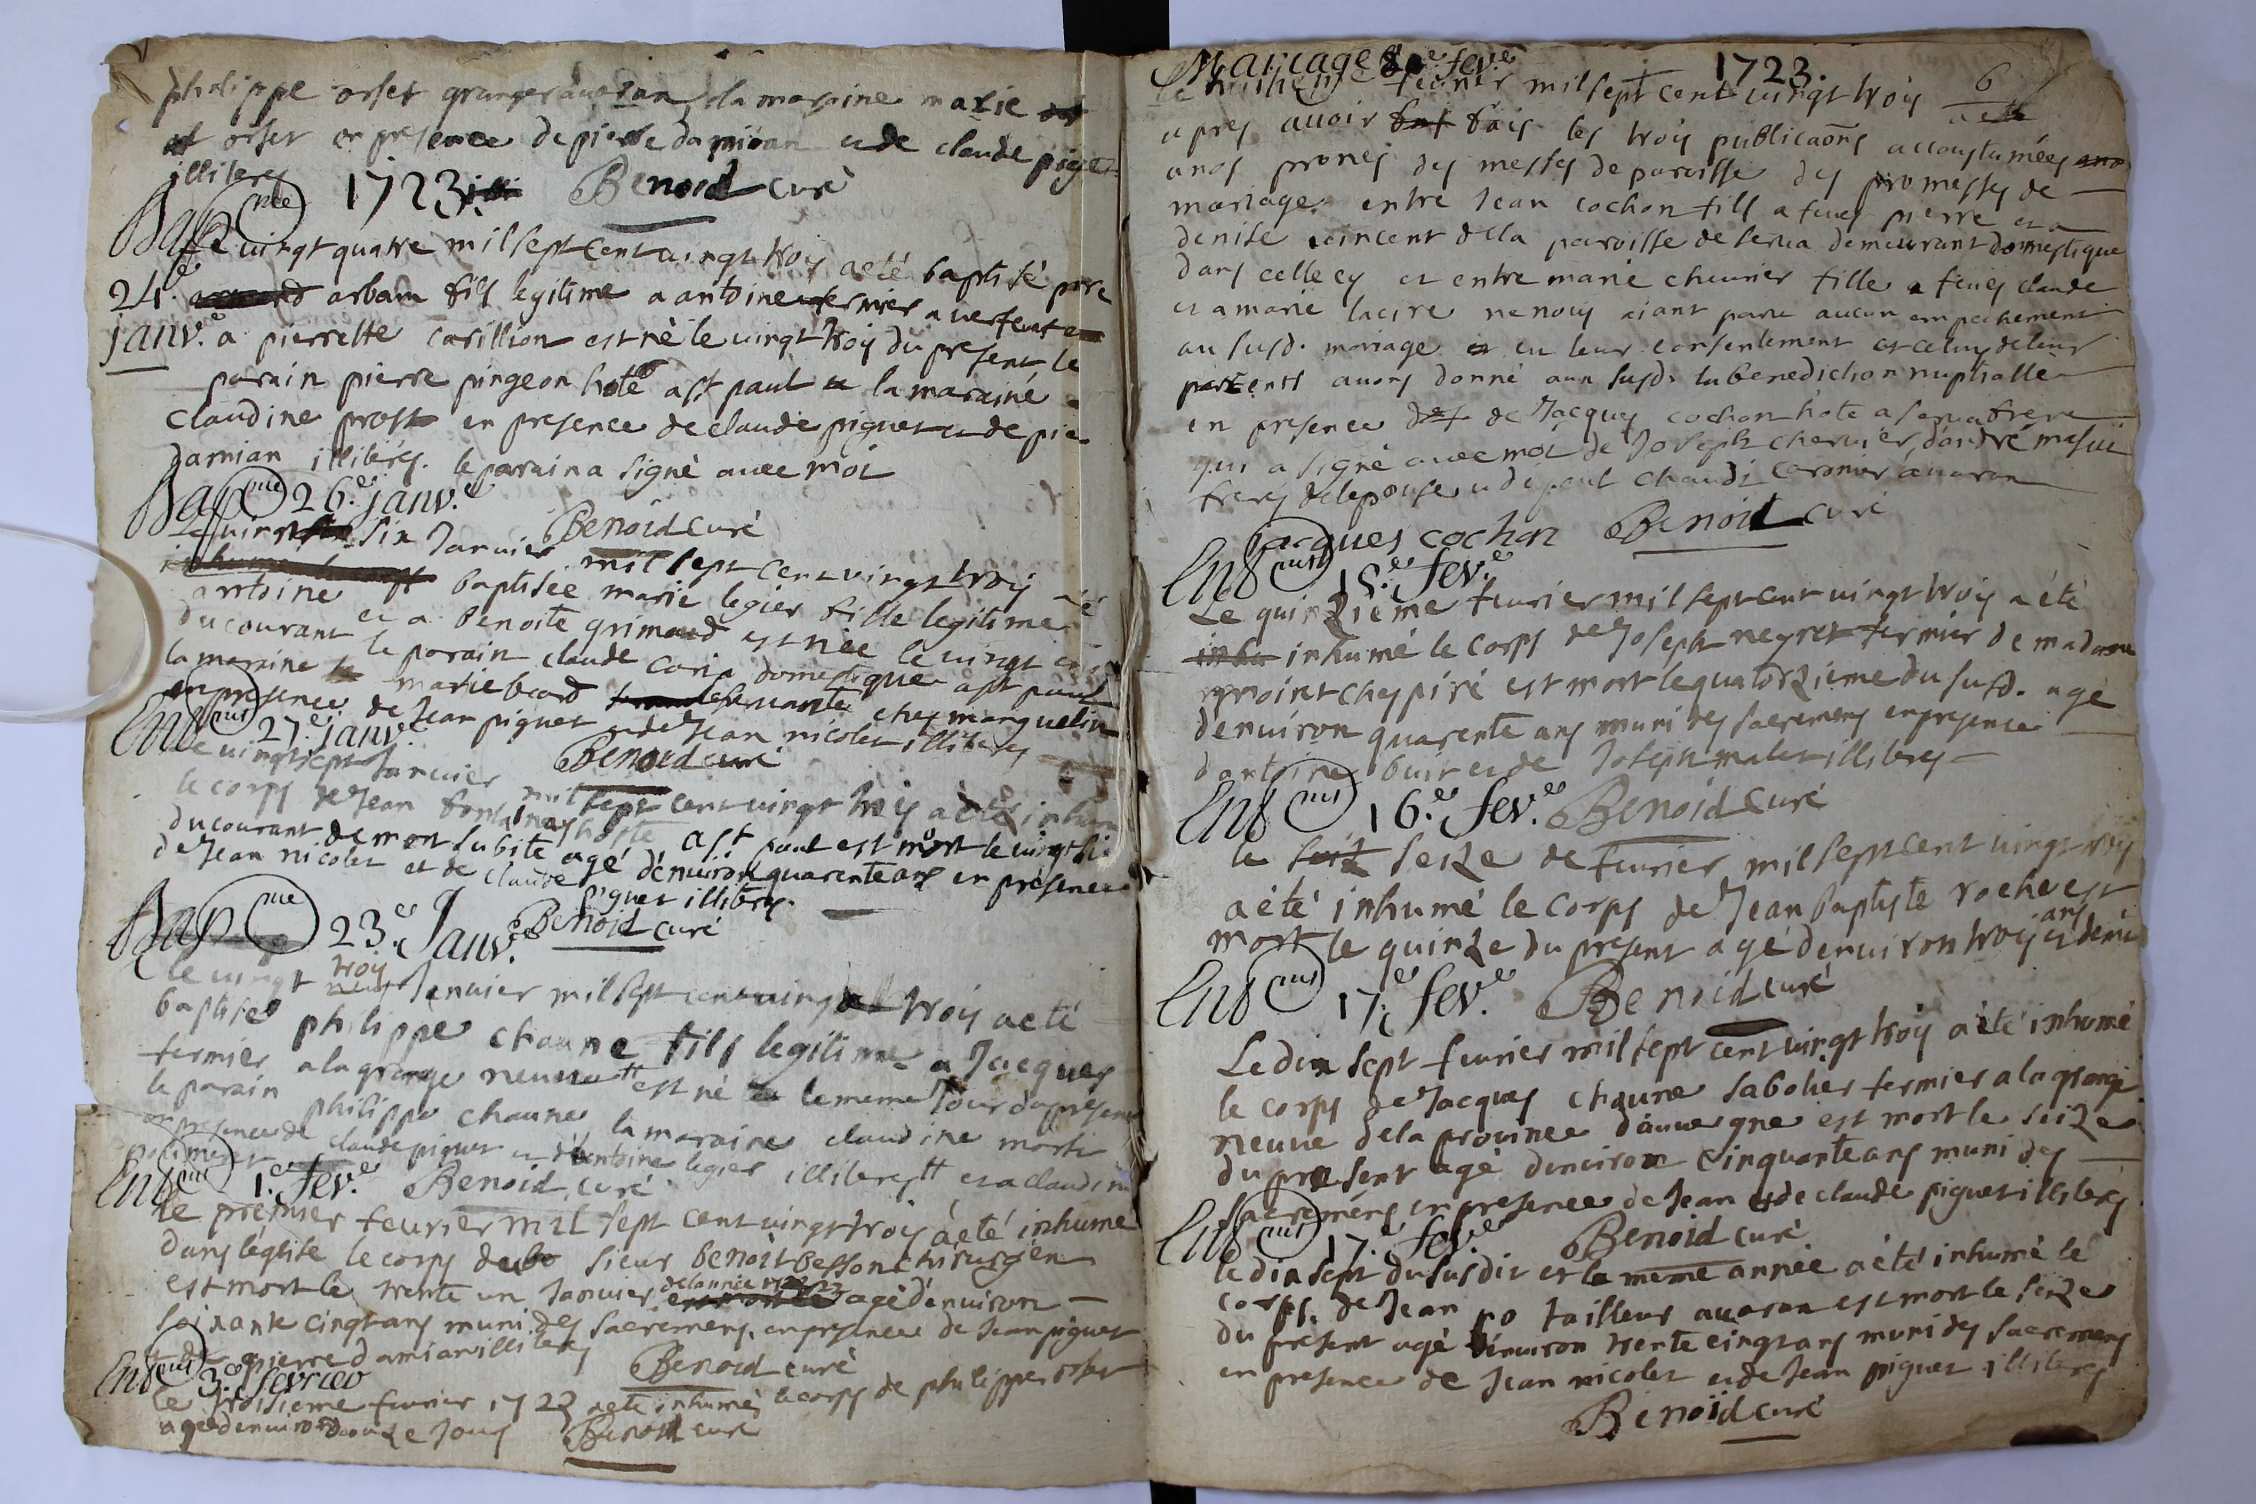 philippe orset granger avaran la maraine marie
et orset en presence de pierre damian et de claude piget
illiteres
1723 Benoid curé
Bap me
24.e janv.e
le vingt quatre mil sept cent vingt trois a eté baptisé
arbain fils legitime a antoine fermier a
a pierrette carillion est né le vingt trois du present le
parain pierre pingeon hote a st paul et la maraine
claudine prost en presence de claude piguet et de pie
damian illiterés. le parain a signé avec moi
Bap me 26.e janv.e
Benoid curé
Le vingt six Janvier mil sept cent vingt trois a eté
baptisée marie legier fille legitime a
antoine et a Benoite grimaud est née le vingt
du courant le parain claude caria domestique a st paul
la maraine marie beard servante chez marguelin
en presence de Jean piguet et de Jean nicolet illiteres
Ent mt 27.e janv.e
Benoid curé
Le vingt sept Janvier mil sept cent vingt trois a eté inhum
le corps de Jean hoste a st paul est mort le vingt si
du courant de mort subite agé d'environ quarente ans en presence
de Jean nicolet et de claude piguet illiteres.
Benoid curé
Bap me 23.e Janv.e
le vingt trois Janvier mil sept cent vingt trois a eté
baptisé philippe chaune fils legitime a Jacques
fermier a la grange neuve tt est né le meme Jour du present
le parain philippe chaune la maraine claudine morti
en presence de claude piguet et d'antoine legier illiteres tt et a claudine
Ent mt 1.e Fev.e Benoid curé
le premier fevrier mil sept cent vingt trois a eté inhumé
dans l'église le corps de sieur benoit besson chirurgien
est mort le trente un Janvier de l'année 1723 agé d'environ
soixante cinq ans muni des sacremens, en presence de Jean piguet
et de pierre damian illiteres
Benoid curé
Ent mt 3.e fevrier
le troisieme fevrier 1723 a eté inhumé le corps de philippe orset
agé d'environ douze Jours Benoid curé
Mariage 8.e fev.e 1723.
6
Le huitieme fevrier mil sept cent vingt trois
apres avoir fais les trois publicaons accoustumées
a nos prones des messes de paroisse des promesses de
mariage entre Jean cochon fils a feus pierre et a
denise vincent de la paroisse de serva demeurant domestique
dans celle cy et entre marie chevrier fille a feus claude
et a marie lacire ne nous aiant paru aucun empechement
au susd. mariage et eu leur consentement et celuy de leurs
parents avons donné aux susds la benediction nuptialle
en presence de Jacques cochon hote a serva frere
qui a signé avec moi de Joseph chevrier, d'andré masuit
freres de lepouse et de paul chaudi cordonier avaran
jacques cochon Benoid curé
Ent mt 15.e fev.e
Le quinzieme fevrier mil sept cent vingt trois a été
inhumé le corps de Joseph neyret fermier de madame
est mort le quatorzieme du susd. agé
d'environ quarente ans muni des sacremens en presence
d'antoine buir et de Joseph malet illiteres
Ent mt 16.e fev.e Benoid curé
le seize de fevrier mil sept cent vingt trois
a été inhumé le corps de Jean baptiste roche est
mort le quinze du present agé d'environ trois ans et demi
Ent mt 17.e fev.e Benoid curé
Le dix sept fevrier mil sept cent vingt trois a été inhumé
le corps de Jacques chaune sabotier fermier a la grange
neuve de la province d'auvergne est mort le seize
du present agé d'environ cinquante ans muni des
sacremens en presence de Jean et de claude piguet illiterés
Ent mt 17.e fev.e Benoid curé
le dix sept du susdit et la meme année a été inhumé le
corps de Jean po tailleur avaran est mort le seize
du present agé d'environ trente cinq ans muni des sacremens
en presence de Jean nicolet et de Jean piguet illiteres
Benoid curé